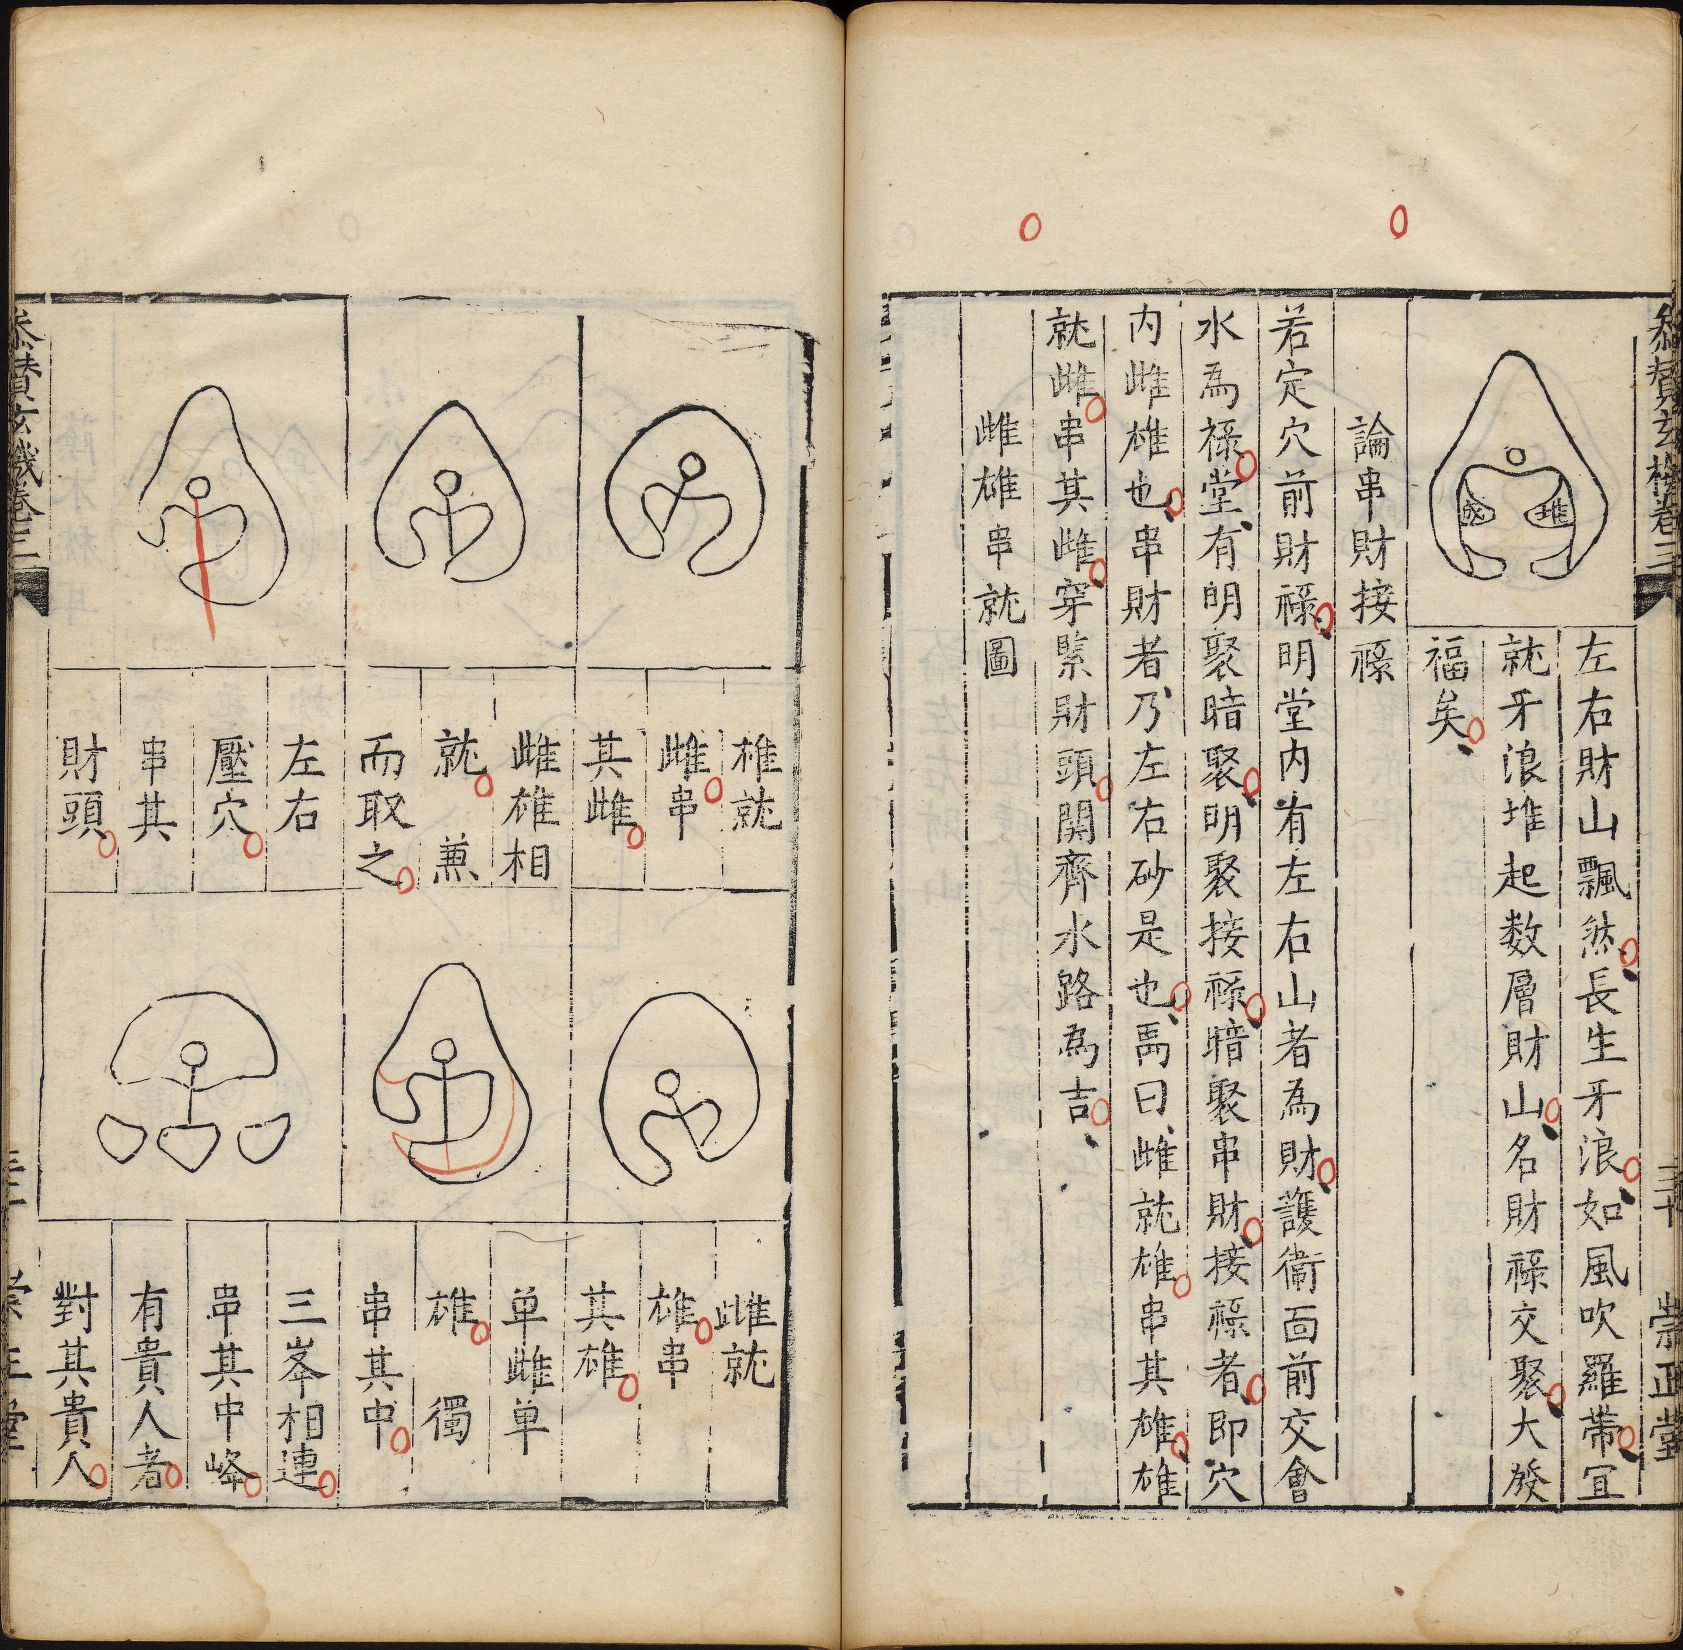 叅贊玄機卷三
三十
崇正堂
堆
左右財山飄然長生牙浪如風吹羅帶宜
就牙浪堆起数層財山名財祿交聚大發
福矣
論串財接祿
若定穴前財祿明堂内有左右山者為財護衛面前交會
水為祿堂有明聚暗聚明聚接祿暗聚串財接祿者即穴
内雌雄也串財者乃左右砂是也禹曰雌就雄串其雄雄
就雌串其雌穿繫財頭開齊水路為吉
雌雄串就圖
雄就
雌串
其雌
雌雄相
就兼
而取之
左右
壓穴
串其
財頭
雌就
雄串
其雄
单雌单
雄獨
串其中
三峯相連
串其中峰
有貴人者
對其貴人